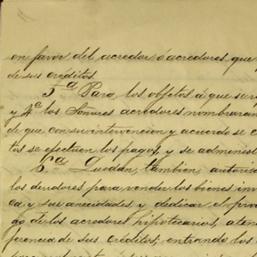 en favor del acredor ó acredores, que
de sus créditos.
5ª Para los objetos á que se
y 4ª los Señores acredores nombraran
de que con su intervencion y acuerdo se
tos se efectuen los pagos, y se administ
6ª Quedan, tambien, autoris
los deudores para vender los bienes in
ca y sus anecsidades y dedicar el pro
go de los acredores hipotecarios, aten
ferencia de sus créditos, entrando los